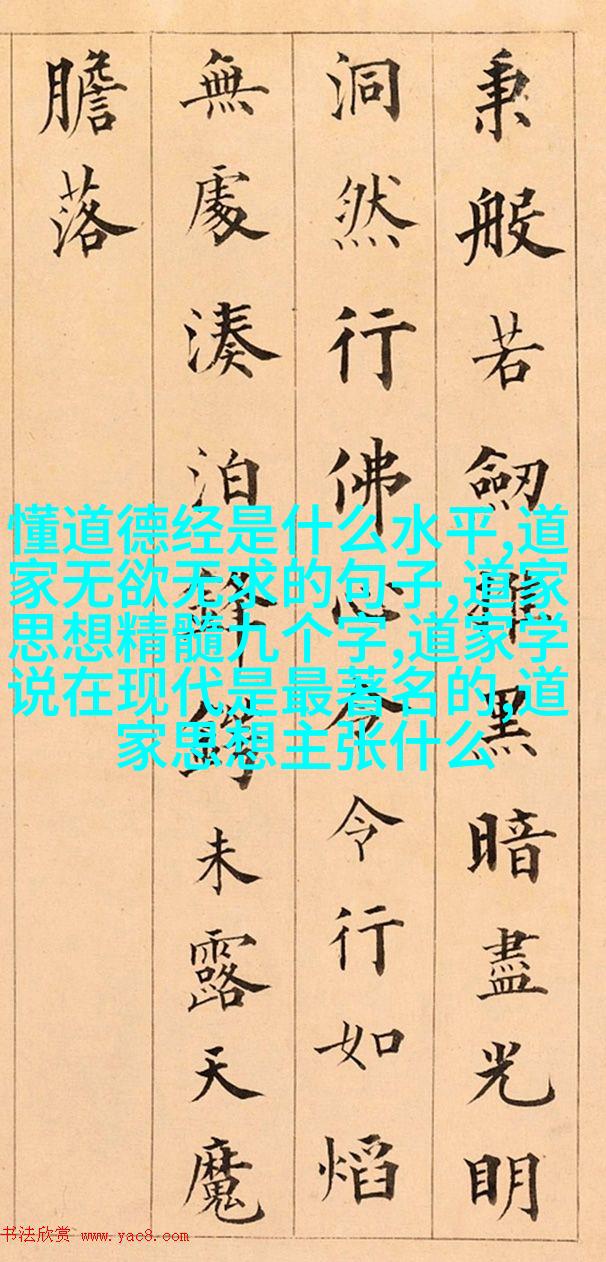 秉般若劒黑暗盡光明
洞然行佛心令令行如熖
無處湊泊鋒未露天魔
膽落
懂道德经是什么水平,道
家无欲无求的句子,道家
思想精髓九个字,道家学
说在现代是最著名的,道
家思想主张什么
书法欣赏 www.yac8.com